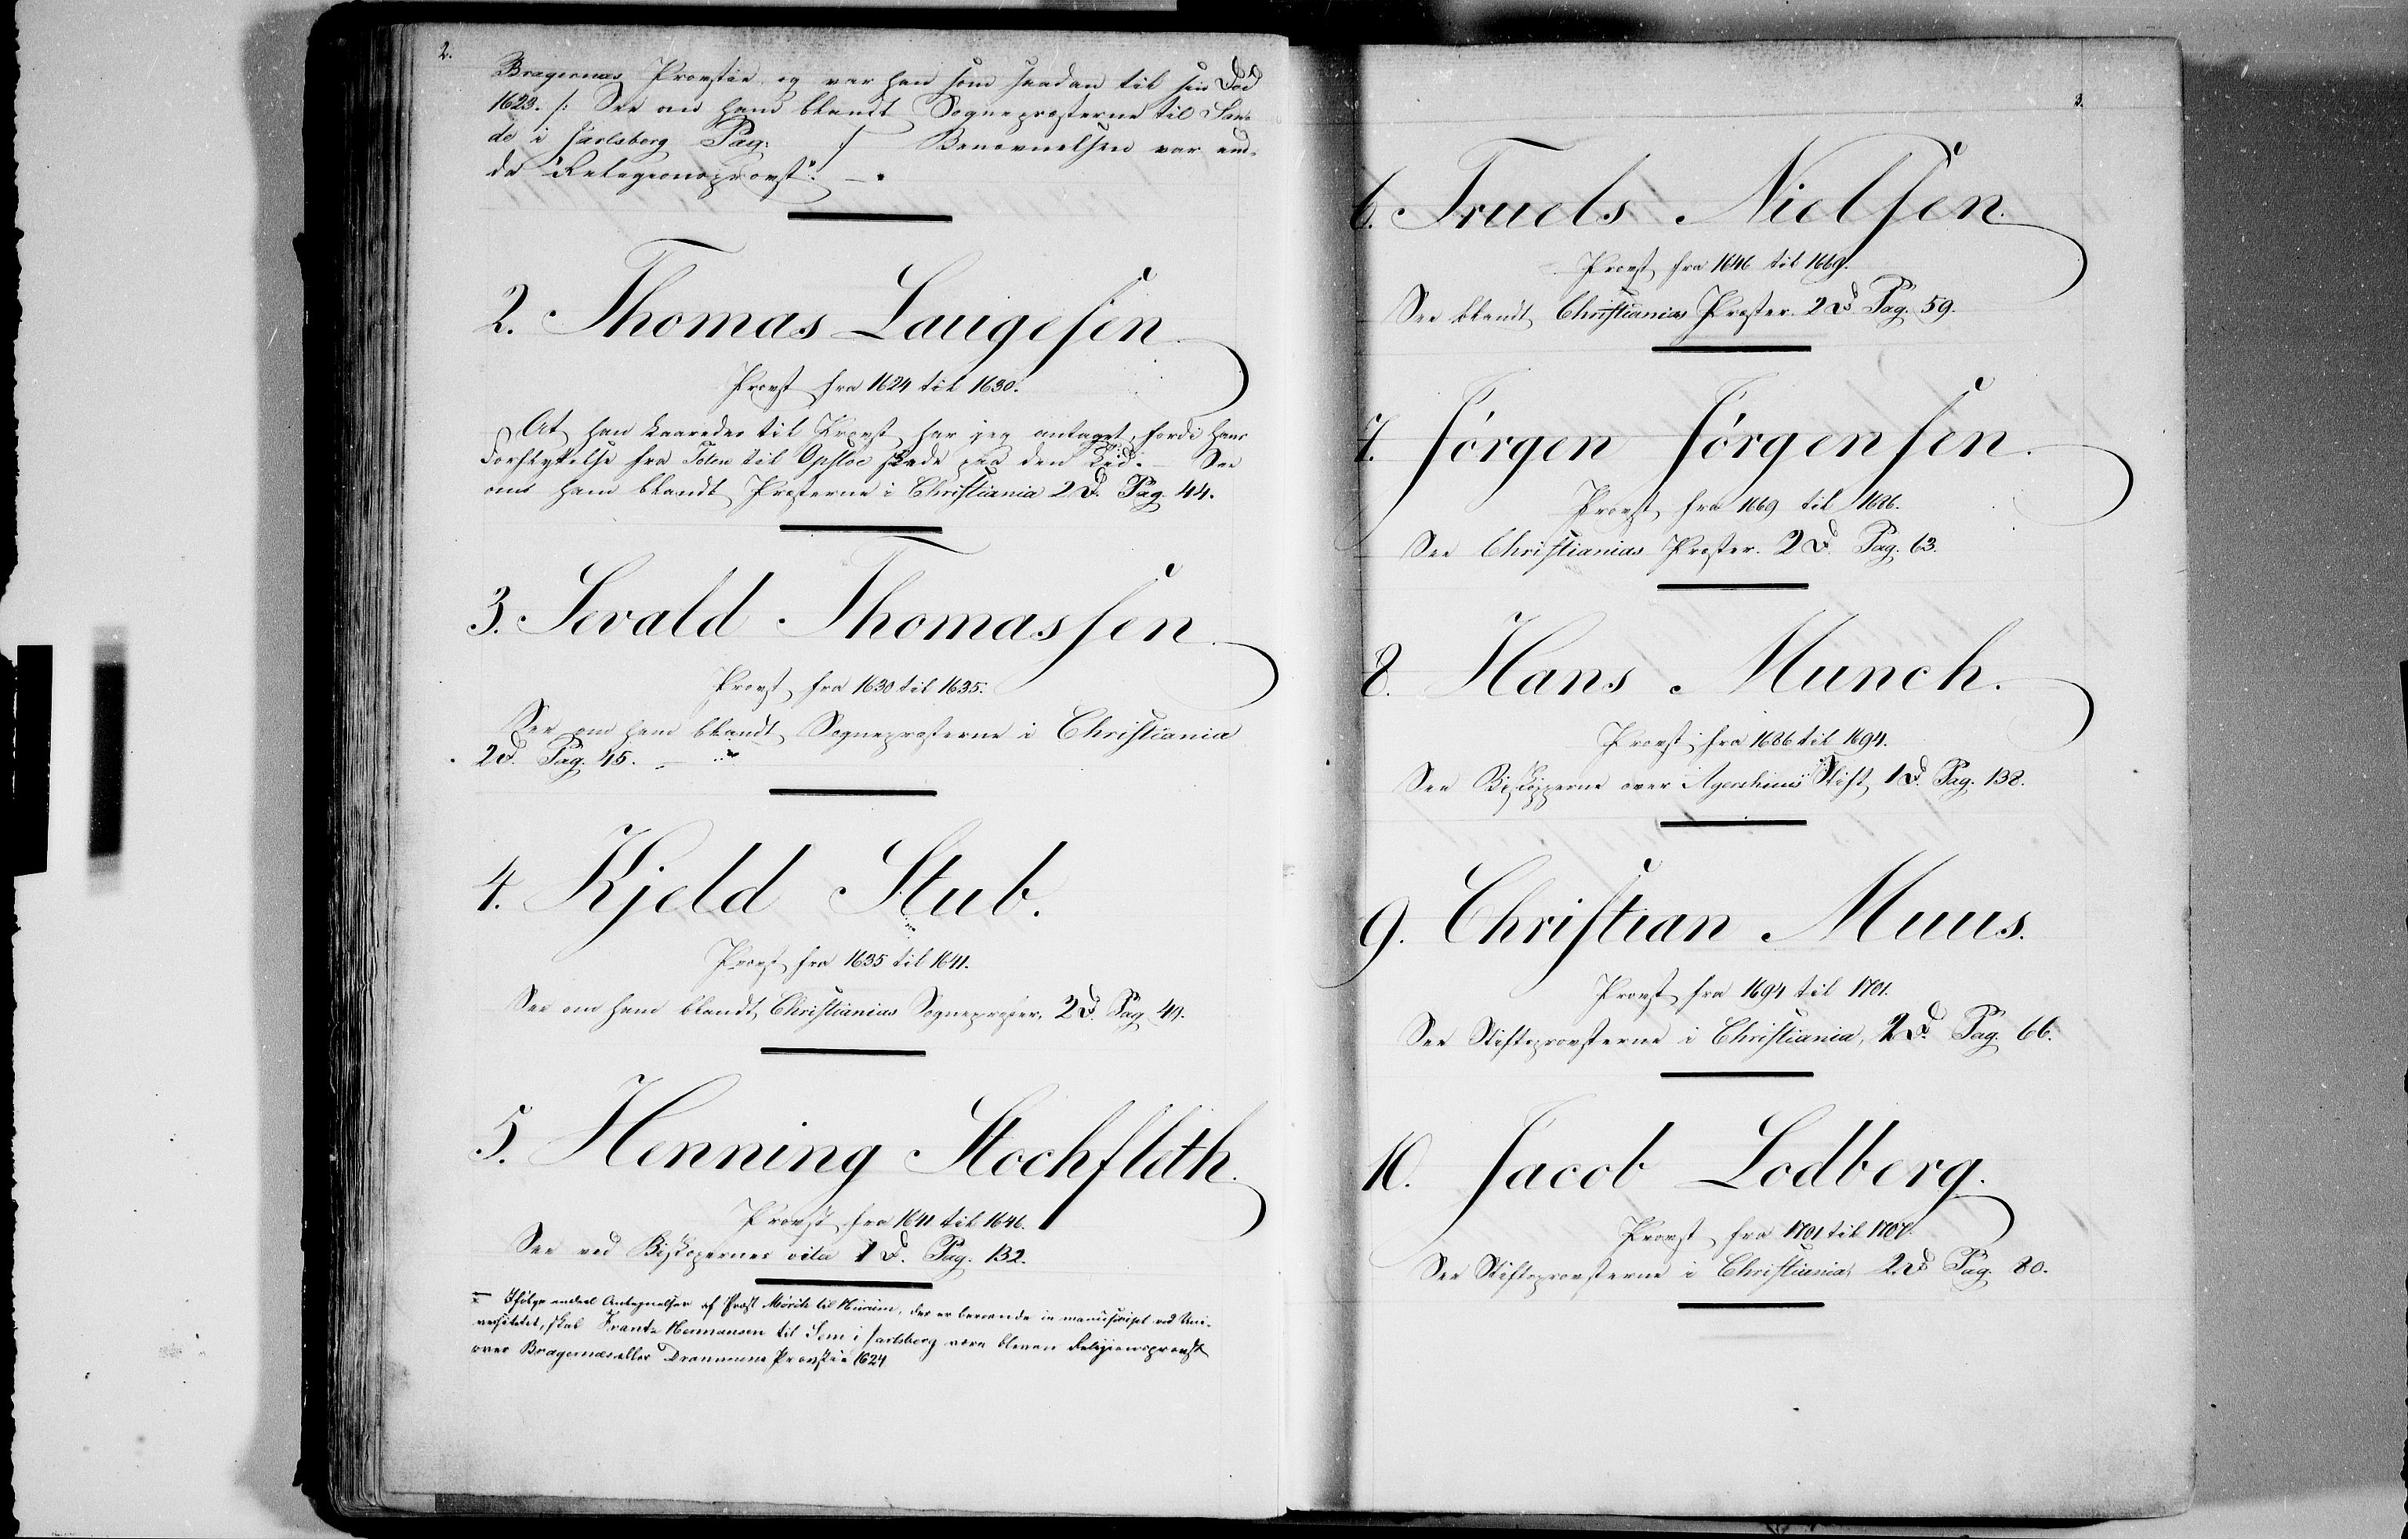 2.
Bragernæs Provstie, og var han som saadan til sin Død
1623. /: See om ham blandt Sognepræsterne til San-
de i Jarlsberg Pag: :/ Benævnelsen var end-
da "Religionsprovst". —
2. Thomas Laugesen.
Provst fra 1624 til 1630.
At han kaaredes til Provst, har jeg antaget, fordi hans
Forflyttelse fra Toten til Opsloe skede paa den Tid. — See
om ham blandt Præsterne i Christiania 2 D. Pag. 44.
3. Sevald Thomassen.
Provst fra 1630 til 1635.
See om ham blandt Sognepræsterne i Christiania
2 D. Pag. 45. —
4. Kjeld Stub.
Provst fra 1635 til 1641.
See om ham blandt Christianias Sognepræster, 2 D. Pag. 49.
5. Henning Stochfleth.
Provst fra 1641 til 1646.
See ved Biskopernes vita 1 D. Pag. 132.
Ifølge endeel Antegnelser af Præst Mørch til Hurum, der er beroende in manuscript ved Uni-
versitetet, skal Frantz Hermansen til Sem i Jarlsberg være bleven Religionsprovst
over Bragernæs eller Drammens Provstie 1624
3.
6. Truels Nielsen.
Provst fra 1646 til 1669.
See blandt Christianias Præster. 2 D. Pag. 59.
7. Jörgen Jörgensen.
Provst fra 1669 til 1686.
See Christianias Præster. 2 D. Pag. 63.
8. Hans Munch.
Provst fra 1686 til 1694.
See Biskopperne over Agershuus Stift, 1 D. Pag. 138.
9. Christian Muus.
Provst fra 1694 til 1701.
See Stiftsprovsterne i Christiania, 2 D. Pag. 66.
10. Jacob Lodberg.
Provst fra 1701 til 1707.
See Stiftsprovsterne i Christiania, 2 D. Pag. 80.